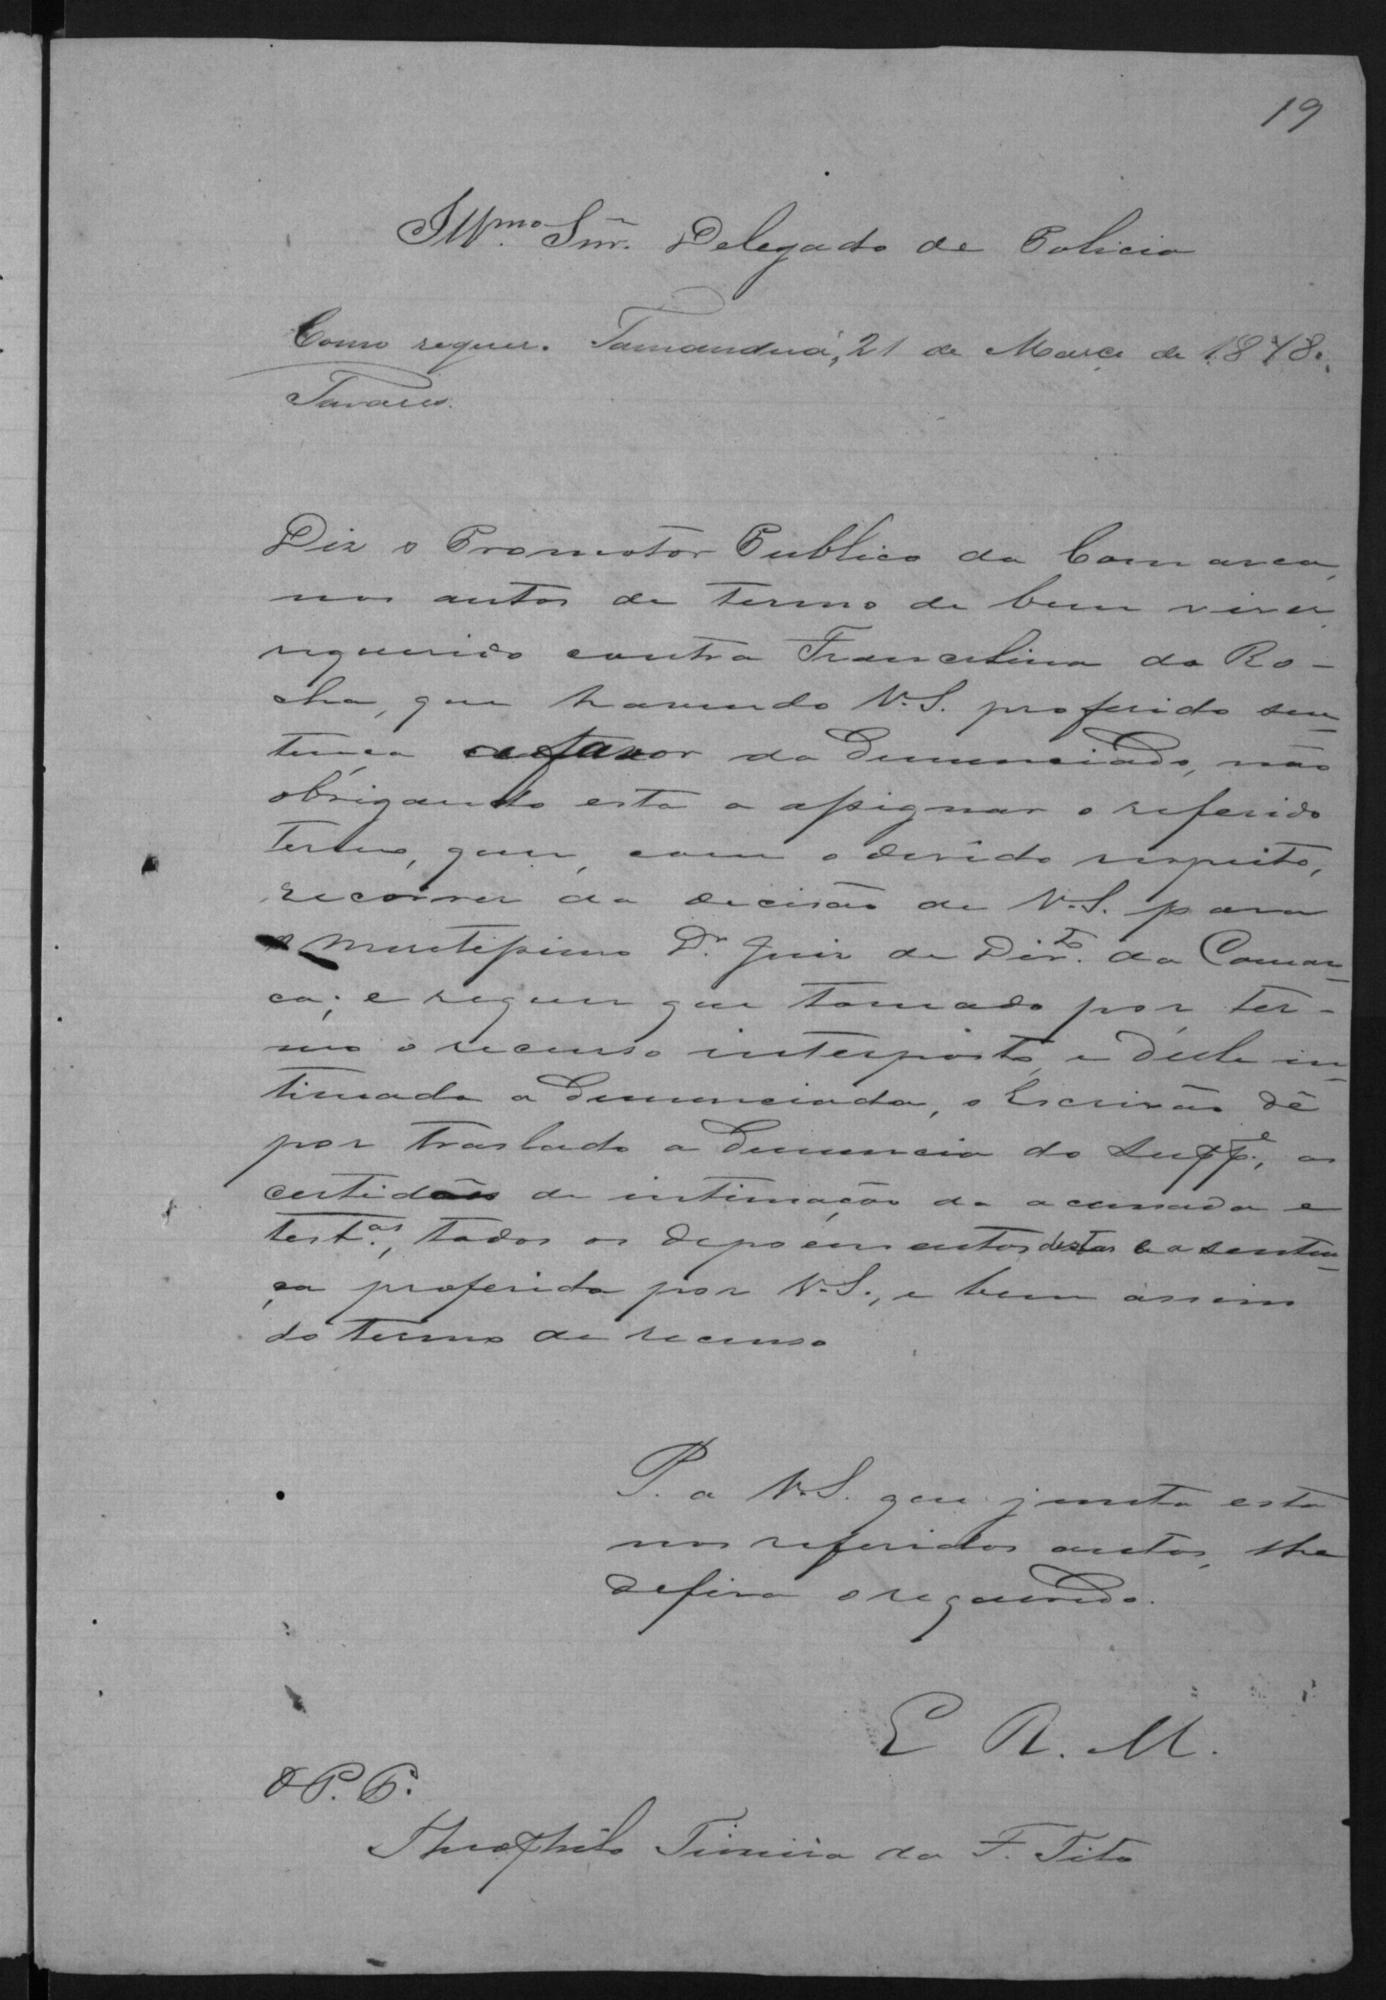 19
Illmo. Snr. Delegado de Policia
Como requer. Tamanduá, 21 de Março de 1878.
Tavares.
Diz o Promotor Publico da Comarca,
nos autos de termo de bem viver
requerido contra Francelina da Ro-
cha, que havendo V.S. proferido sen-
tença a favor da denunciada, não
obrigando esta a assignar o referido
termo, quer, com o devido respeito,
recorrer da decisão de V.S. para
o Meretissimo Dr. Juiz de Dirto. da Comar-
ca; e requer que tomado por ter-
mo o recurso interposto, e delle in-
timada a denunciada, o Escrivão dê
por traslado a denuncia do Suppe., as
certidões de intimação da accusada e
testas., todos os depoimentos destas e a senten-
ça proferida por V.S., e bem assim
do termo de recurso
P. a V.S. que junta esta
nos referidos autos, lhe
defira o requerido.
E R. M.
O P. P.
Theophilo Pereira da F. Tito